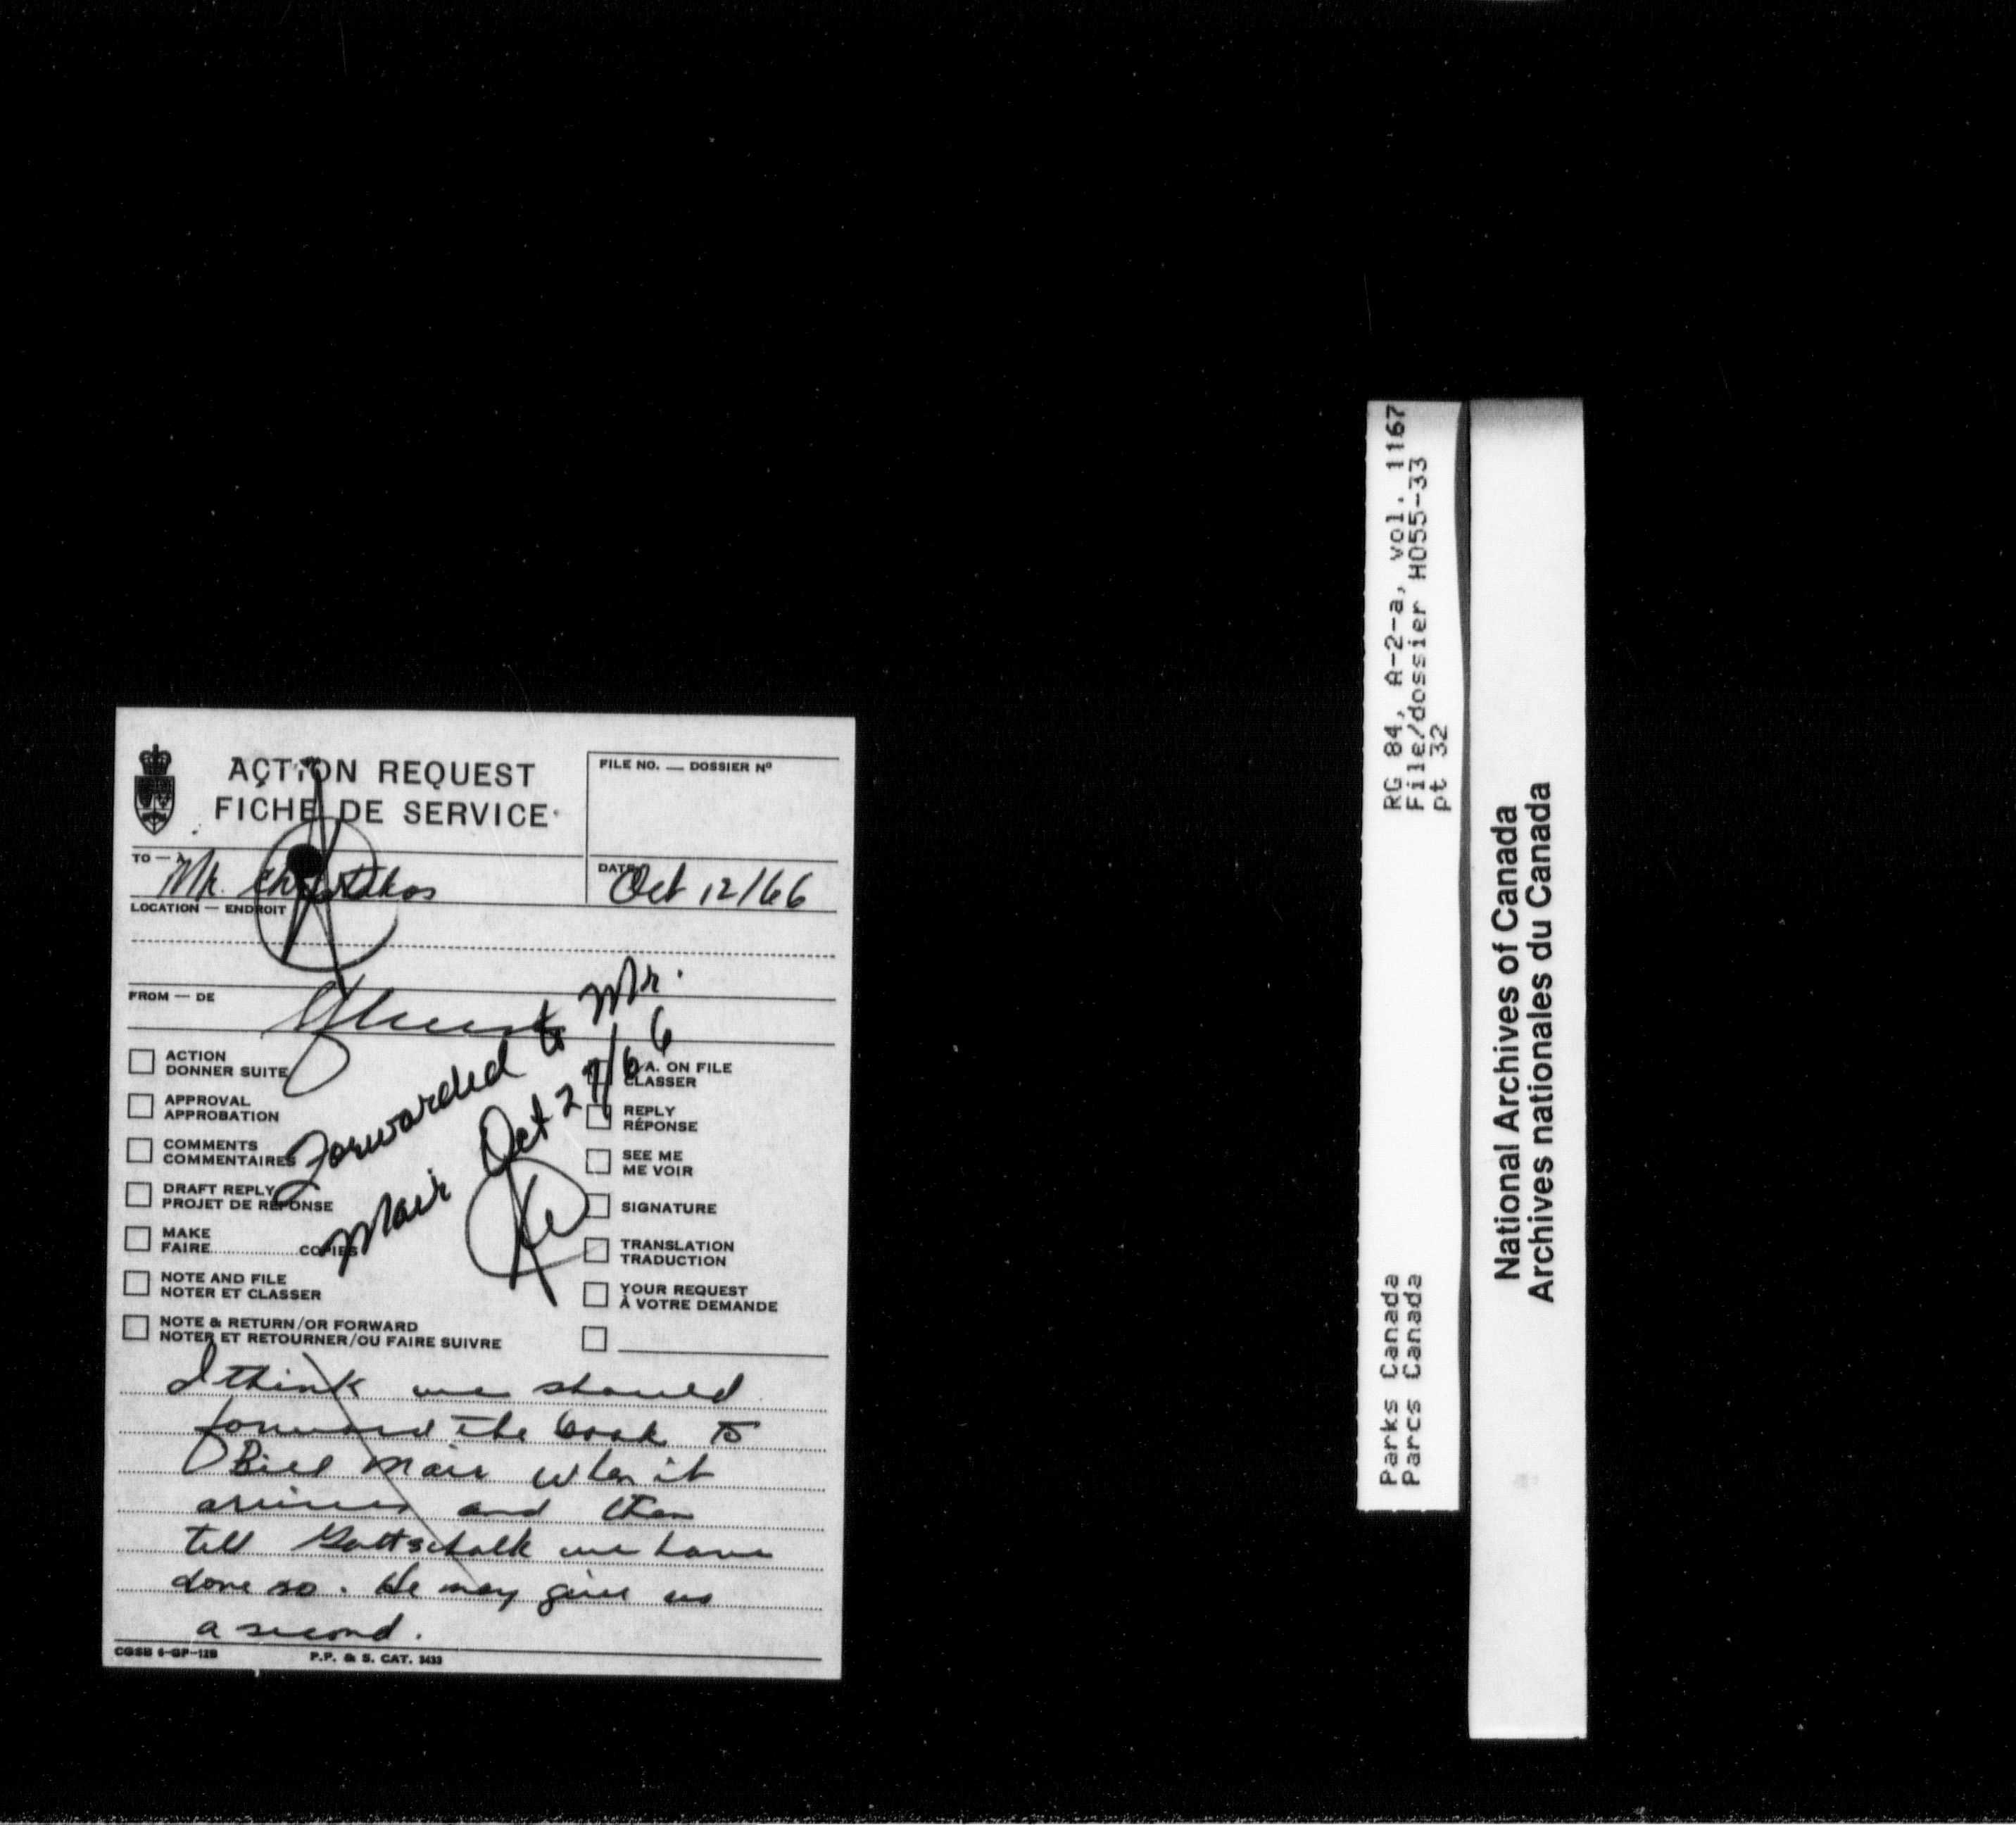 ACTION REQUEST
FICHE DE SERVICE
FILE NO. — DOSSIER Nº
TO — À
Mr.
DATE
Oct 12/66
LOCATION — ENDROIT
FROM — DE
Forwarded to Mr.
Mair Oct 27/66
ACTION
DONNER SUITE
APPROVAL
APPROBATION
COMMENTS
COMMENTAIRES
DRAFT REPLY
PROJET DE RÉPONSE
MAKE
FAIRE..............COPIES
NOTE AND FILE
NOTER ET CLASSER
NOTE & RETURN/OR FORWARD
NOTER ET RETOURNER/OU FAIRE SUIVRE
P.A. ON FILE
CLASSER
REPLY
RÉPONSE
SEE ME
ME VOIR
SIGNATURE
TRANSLATION
TRADUCTION
YOUR REQUEST
À VOTRE DEMANDE
I think we should
forward the book to
Bill Mair when it
arrives and then
tell Gottschalk we have
done so. He may give us
a second.
CGSB 6-GP-12B
P.P. & S. CAT. 3433
RG 84, A-2-a, vol. 1167
File/dossier H055-33
pt 32
Parks Canada
Parcs Canada
National Archives of Canada
Archives nationales du Canada